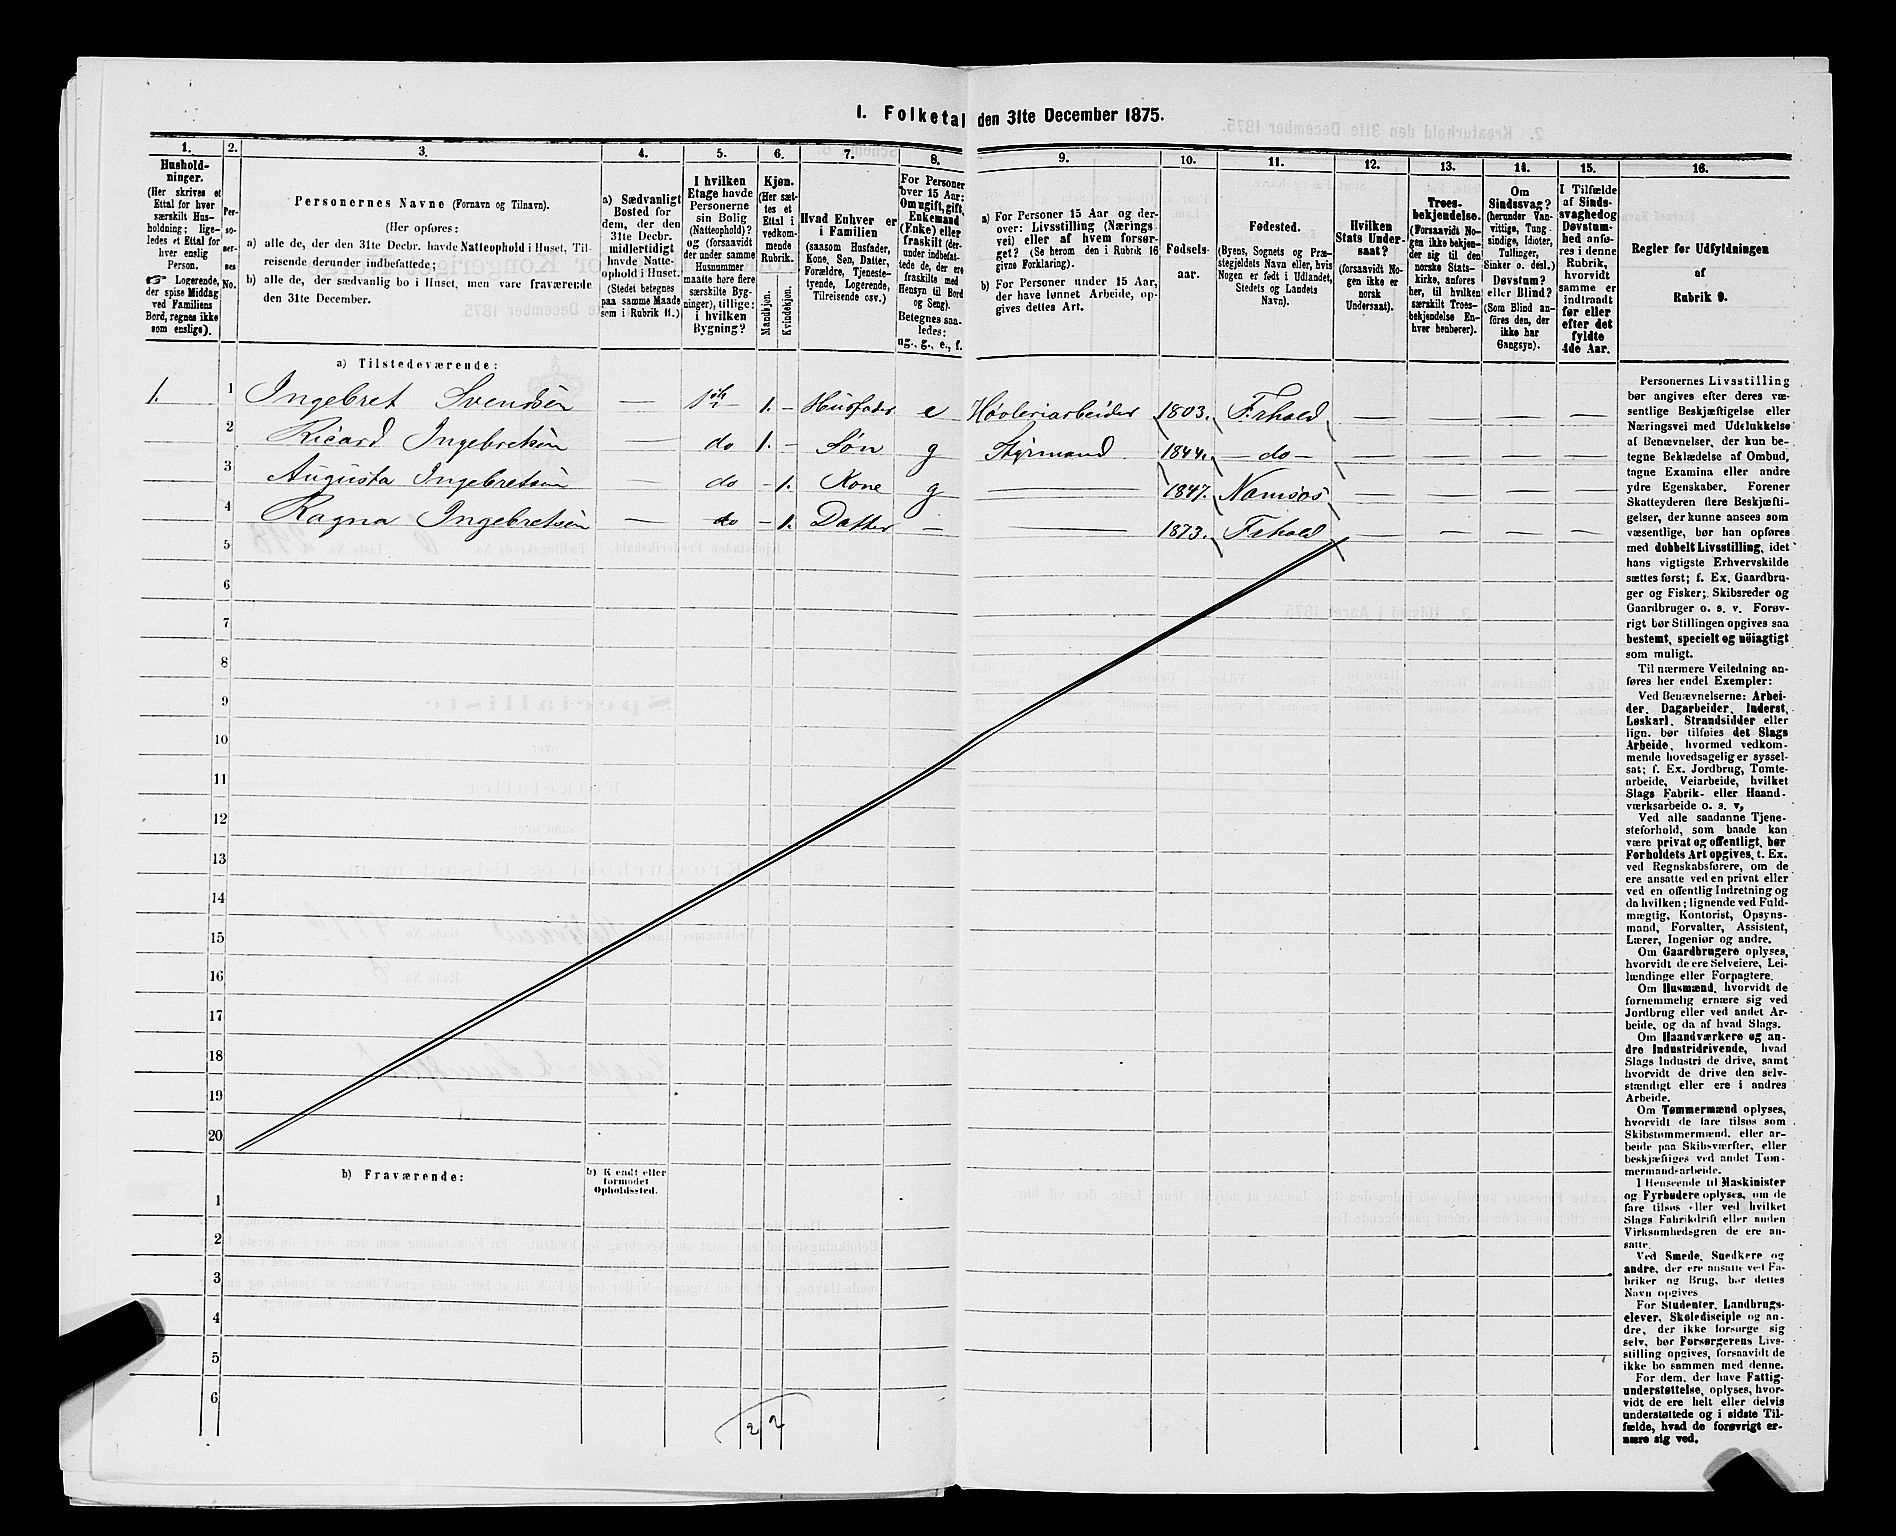 1. Folketal den 31te December 1875.
1. 2. 3. 4. 5. 6. 7. 8. 9. 10. 11. 12. 13. 14. 15. 16.
Hushold-
ninger.
(Her skrives et
Ettal for hver
særskilt Hus-
holdning; lige-
ledes et Ettal for
hver enslig
Person.
☞ Logerende,
der spise Middag
ved Familiens
Bord, regnes ikke
som enslige).
Per-
so-
ner-
nes
No.
Personernes Navne (Fornavn og Tilnavn).
(Her opføres:
a) alle de, der den 31te Decbr. havde Natteophold i Huset, Til-
reisende derunder indbefattede;
b) alle de, der sædvanlig bo i Huset, men vare fraværende
den 31te December.
a) Sædvanligt
Bosted for
dem, der den
31te Decbr.
midlertidigt
havde Natte-
ophold i Huset.
(Stedet betegnes
paa samme Maade
som i Rubrik 11.)
I hvilken
Etage havde
Personerne
sin Bolig
(Natteophold)?
og (forsaavidt
der under samme
Husnummer
maatte høre flere
særskilte Byg-
ninger), tillige:
i hvilken
Bygning?
Kjøn.
(Her sæt-
tes et
Ettal i
vedkom-
mende
Rubrik.
Mandkjøn.
Kvindekjøn.
Hvad Enhver er
i Familien
(saasom Husfader,
Kone, Søn, Datter,
Forældre, Tjeneste-
tyende, Logerende,
Tilreisende osv.)
For Personer
over 15 Aar:
Om ugift, gift,
Enkemand
(Enke) eller
fraskilt (der-
under indbefat-
tede de, der ere
fraskilte med
Hensyn til Bord
og Seng).
Betegnes saa-
ledes:
ug., g., e., f.
a) For Personer 15 Aar og der-
over: Livsstilling (Nærings-
vei) eller af hvem forsør-
get? (Se herom den i Rubrik 16
givne Forklaring).
b) For Personer under 15 Aar,
der have lønnet Arbeide, op-
gives dettes Art.
Fødsels-
aar.
Fødested.
(Byens, Sognets og Præ-
stegjeldets Navn eller, hvis
Nogen er født i Udlandet,
Stedets og Landets
Navn).
Hvilken
Stats Under-
saat?
(forsaavidt No-
gen ikke er
norsk
Undersaat).
Troes-
bekjendelse.
(Forsaavidt No-
gen ikke bekjen-
der sig til den
norske Stats-
kirke, anføres
her, til hvilken
særskilt Troes-
bekjendelse En-
hver henhører).
Om
Sindssvag?
(herunder Van-
vittige, Tung-
sindige, Idioter,
Tullinger,
Sinker o. desl.)
Døvstum?
eller Blind?
(Som Blind an-
føres den, der
ikke har
Gangsyn).
I Tilfælde
af Sinds-
svaghed og
Døvstum-
hed anfø-
res i denne
Rubrik,
hvorvidt
samme er
indtraadt
før eller
efter det
fyldte
4de Aar.
Regler for Udfyldningen
af
Rubrik 9.
a) Tilstedeværende:
1. 1 Ingebret Svendsen — 1ste 1. – Husfader e Høvleriarbeider 1803. Frhald — — — —
2 Ricard Ingebretsen — do 1. – Søn g Styrmand 1844. – do – — — — —
3 Augusta Ingebretsen do – 1. Kone g — 1847. Namsos — — — —
4 Ragna Ingebretsen — do – 1. Datter – — 1873. Frhald — — — —
5
6
7
8
9
10
11
12
13
14
15
16
17
18
19
20
b) Fraværende:
b) Kjendt eller
formodet
Opholdssted.
1
2
3
4
5
6
2 2
Personernes Livsstilling
bør angives efter deres væ-
sentlige Beskjæftigelse eller
Næringsvei med Udelukkelse
af Benævnelser, der kun be-
tegne Beklædelse af Ombud,
tagne Examina eller andre
ydre Egenskaber. Forener
Skatteyderen flere Beskjæfti-
gelser, der kunne ansees som
væsentlige, bør han opføres
med dobbelt Livsstilling, idet
hans vigtigste Erhvervskilde
sættes først; f. Ex. Gaardbru-
ger og Fisker; Skibsreder og
Gaardbruger o. s. v. Forøv-
rigt bør Stillingen opgives saa
bestemt, specielt og nöiagtigt
som muligt.
Til nærmere Veiledning an-
føres her endel Exempler:
Ved Benævnelserne: Arbei-
der, Dagarbeider, Inderst,
Løskarl, Strandsidder eller
lign. bør tilføies det Slags
Arbeide, hvormed vedkom-
mende hovedsagelig er syssel-
sat; f. Ex. Jordbrug, Tomte-
arbeide, Veiarbeide, hvilket
Slags Fabrik- eller Haand-
værksarbeide o. s. v.
Ved alle saadanne Tjene-
steforhold, som baade kan
være privat og offentligt, bør
Forholdets Art opgives, t. Ex.
ved Regnskabsførere, om de
ere ansatte ved en privat eller
ved en offentlig Indretning og
da hvilken; lignende ved Fuld-
mægtig, Kontorist, Opsyns-
mand, Forvalter, Assistent,
Lærer, Ingeniør og andre.
Om Gaardbrugere oplyses,
hvorvidt de ere Selveiere, Lei-
lændinge eller Forpagtere.
Om Husmænd, hvorvidt de
fornemmelig ernære sig ved
Jordbrug eller ved andet Ar-
beide, og da af hvad Slags.
Om Haandværkere og an-
dre Industridrivende, hvad
Slags Industri de drive, samt
hvorvidt de drive den selv-
stændigt eller ere i andres
Arbeide.
Om Tømmermænd oplyses,
hvorvidt de fare tilsøs som
Skibstømmermænd, eller ar-
beide paa Skibsværfter, eller
beskjæftiges ved andet Tøm-
mermandsarbeide.
I Henseende til Maskinister
og Fyrbødere oplyses, om de
fare tilsøs eller ved hvilket
Slags Fabrikdrift eller anden
Virksomhedsgren de ere an-
satte.
Ved Smede, Snedkere og
andre, der ere ansatte ved Fa-
briker og Brug, bør dettes
Navn opgives
For Studenter, Landbrugs-
elever, Skoledisciple og an-
dre, der ikke forsørge sig
selv, bør Forsørgerens Livs-
stilling opgives, forsaavidt de
ikke bo sammen med denne.
For dem, der have Fattig-
understøttelse, oplyses, hvor-
vidt de ere helt eller delvis
understøttede og i sidste Til-
fælde, hvad de forøvrigt er-
nære sig ved.